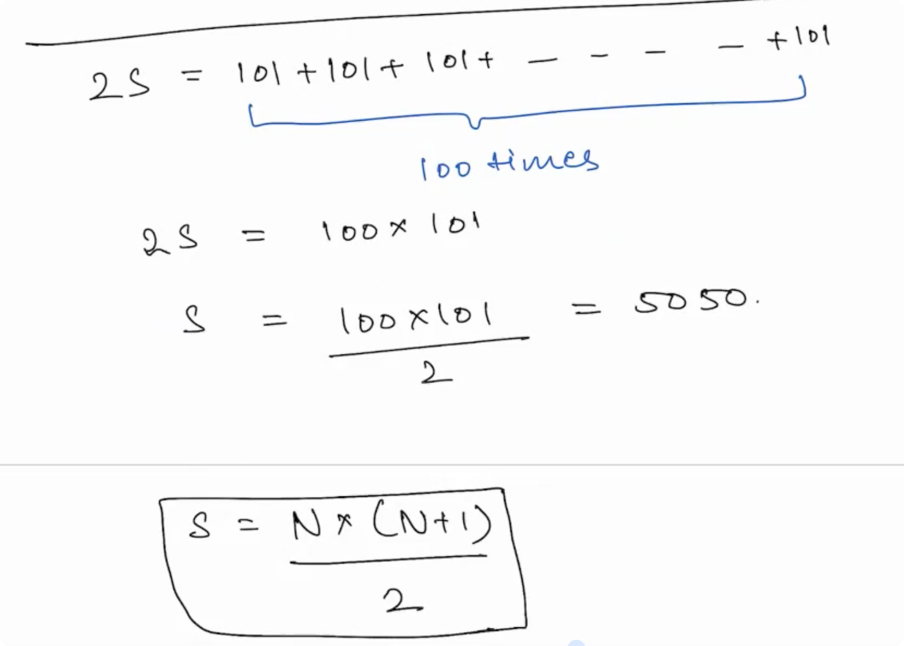 2S = 101 + 101 + 101 + — - - — + 101
100 times
2S = 100 × 101
S = 100 × 101 / 2 = 5050.
S = N × (N+1) / 2